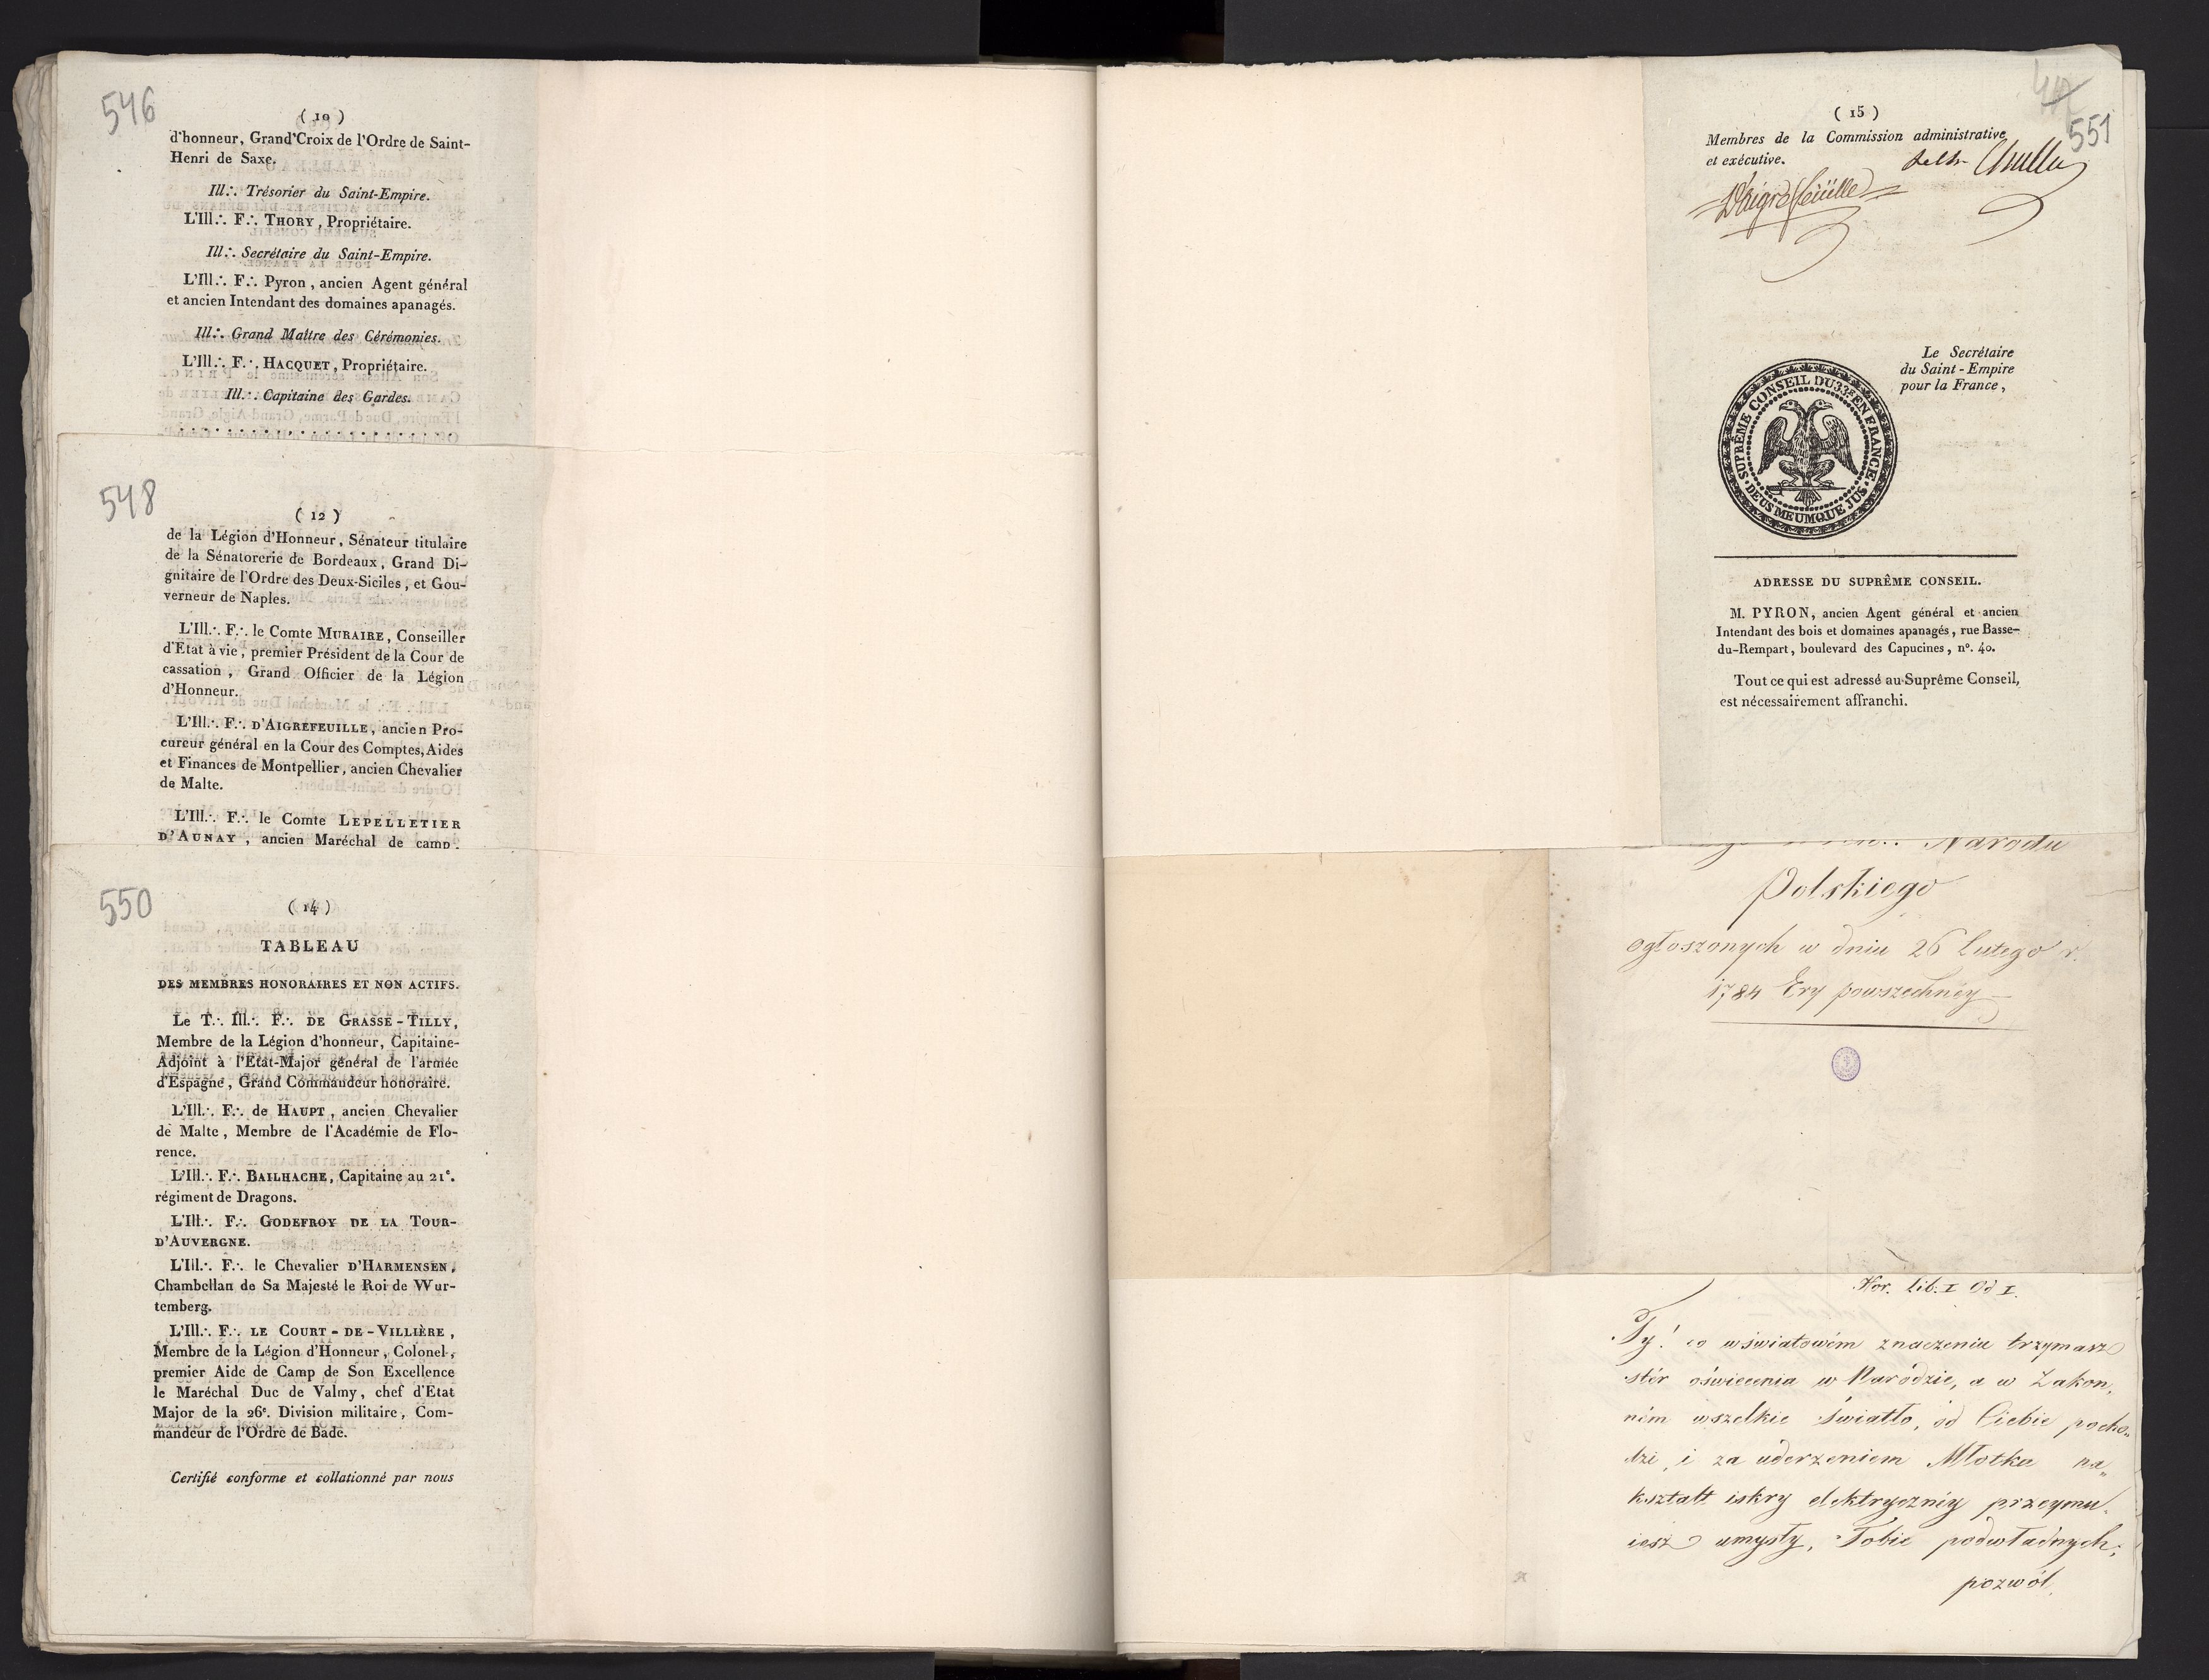 546
( 10 )
d'honneur, Grand'Croix de l'Ordre de Saint-
Henri de Saxe.
Ill∴ Trésorier du Saint-Empire.
L'Ill∴ F∴ THORY, Propriétaire.
Ill∴ Secrétaire du Saint-Empire.
L'Ill∴ F∴ Pyron, ancien Agent général
et ancien Intendant des domaines apanagés.
Ill∴ Grand Maître des Cérémonies.
L'Ill∴ F∴ HACQUET, Propriétaire.
Ill∴ Capitaine des Gardes.
548
( 12 )
de la Légion d'Honneur, Sénateur titulaire
de la Sénatorerie de Bordeaux, Grand Di-
gnitaire de l'Ordre des Deux-Siciles, et Gou-
verneur de Naples.
L'Ill∴ F∴ le Comte MURAIRE, Conseiller
d'Etat à vie, premier Président de la Cour de
cassation, Grand Officier de la Légion
d'Honneur.
L'Ill∴ F∴ D'AIGREFEUILLE, ancien Pro-
cureur général en la Cour des Comptes, Aides
et Finances de Montpellier, ancien Chevalier
de Malte.
L'Ill∴ F∴ le Comte LEPELLETIER
D'AUNAY, ancien Maréchal de camp.
550
( 14 )
TABLEAU
DES MEMBRES HONORAIRES ET NON ACTIFS.
Le T∴ Ill∴ F∴ DE GRASSE-TILLY,
Membre de la Légion d'honneur, Capitaine-
Adjoint à l'Etat-Major général de l'armée
d'Espagne, Grand Commandeur honoraire.
L'Ill∴ F∴ de HAUPT, ancien Chevalier
de Malte, Membre de l'Académie de Flo-
rence.
L'Ill∴ F∴ BAILHACHE, Capitaine au 21e.
régiment de Dragons.
L'Ill∴ F∴ GODEFROY DE LA TOUR-
D'AUVERGNE.
L'Ill∴ F∴ le Chevalier D'HARMENSEN,
Chambellan de Sa Majesté le Roi de Wur-
temberg.
L'Ill∴ F∴ LE COURT-DE-VILLIÈRE,
Membre de la Légion d'Honneur, Colonel,
premier Aide de Camp de Son Excellence
le Maréchal Duc de Valmy, chef d'Etat
Major de la 26e. Division militaire, Com-
mandeur de l'Ordre de Bade.
Certifié conforme et collationné par nous
551
( 15 )
Membres de la Commission administrative
et exécutive.
D'aigrefeüille
Le Secrétaire
du Saint-Empire
pour la France,
SUPRÊME CONSEIL DU 33e EN FRANCE
DEUS MEUMQUE JUS
ADRESSE DU SUPRÊME CONSEIL.
M. PYRON, ancien Agent général et ancien
Intendant des bois et domaines apanagés, rue Basse-
du-Rempart, boulevard des Capucines, n°. 40.
Tout ce qui est adressé au Suprême Conseil,
est nécessairement affranchi.
Narodu
Polskiego
ogłoszonych w dniu 26 Lutego r.
1784 Ery powszechnéy
Hor. lib: I Od I.
Ty! co w światowém znaczeniu trzymasz
stér oświecenia w Narodzie, a w Zakon,
ném wszelkie światło, od Ciebie pocho„
dzi, i za uderzeniem Młotka na„
kształt iskry elektrycznéy przeymu„
iesz umysły, Tobie podwładnych;
pozwól